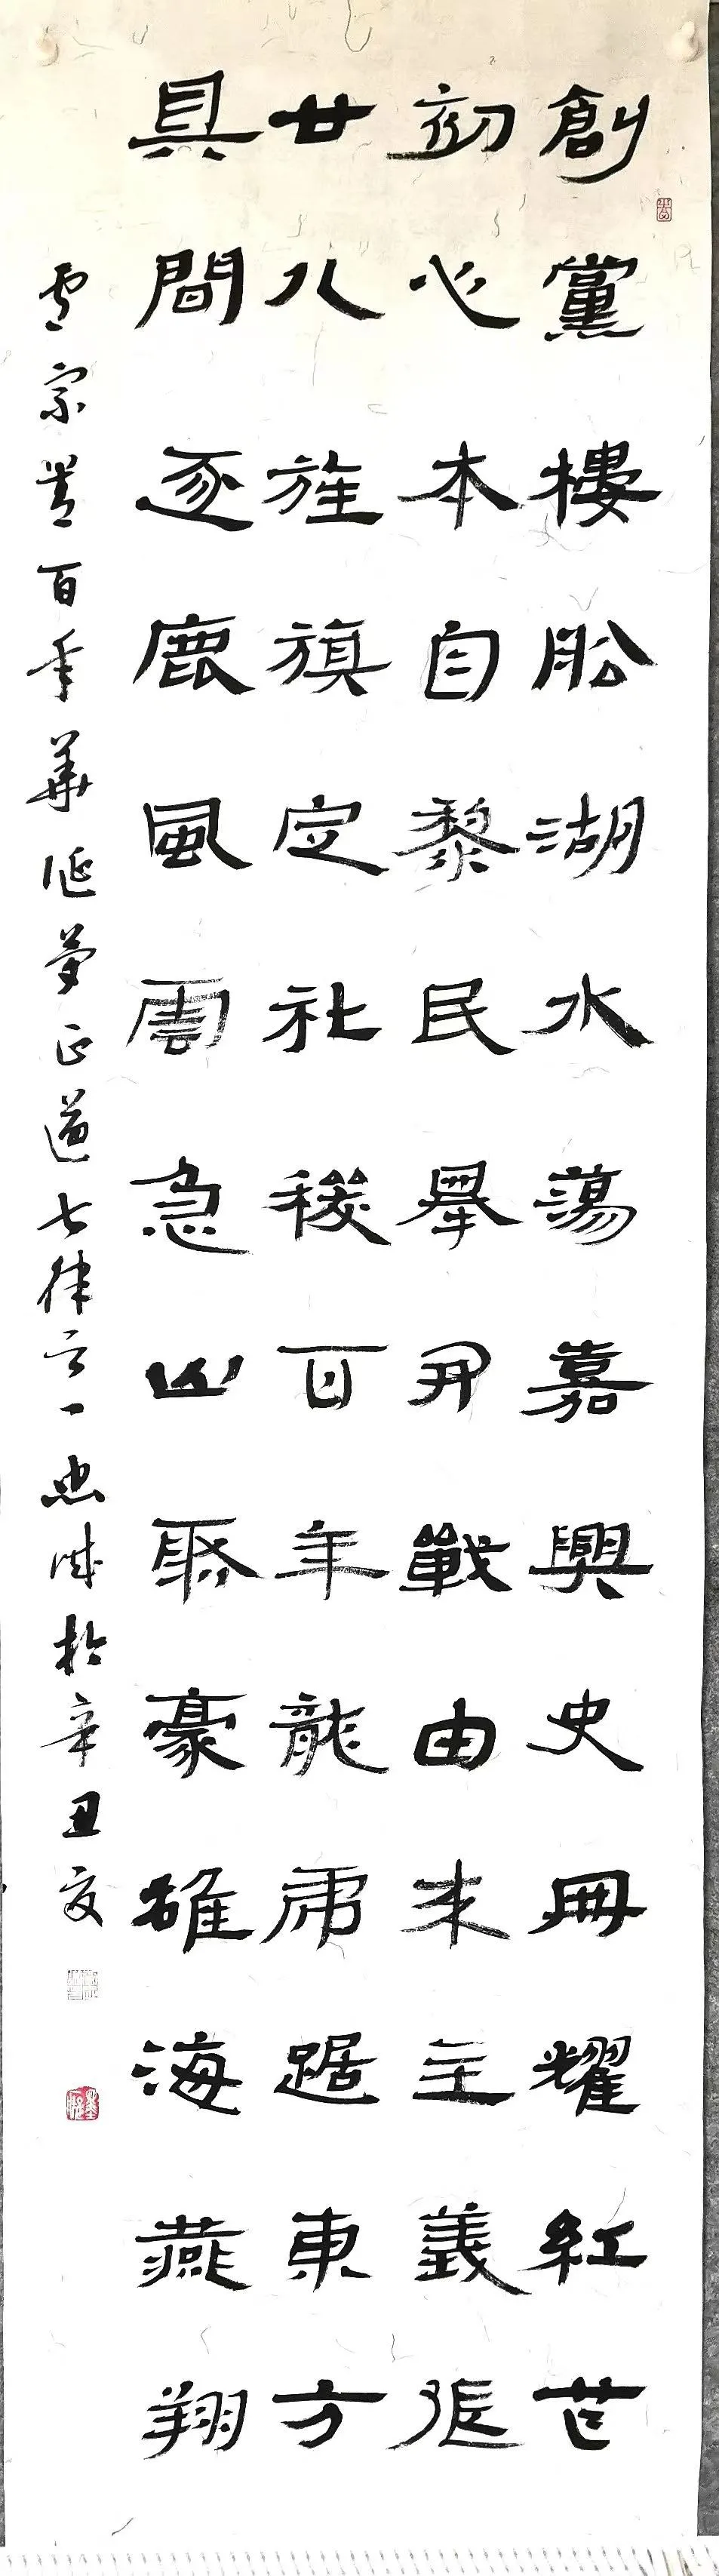 創黨樓船湖水蕩嘉興史冊耀紅芒
初心本自黎民舉尹戰由来主義張
廿八旌旗定社稷百年龍虎踞東方
具間逐鹿風雲急山聚豪雄海燕翔
宗 百年華誕夢正道七律一 忠誠於辛丑夏